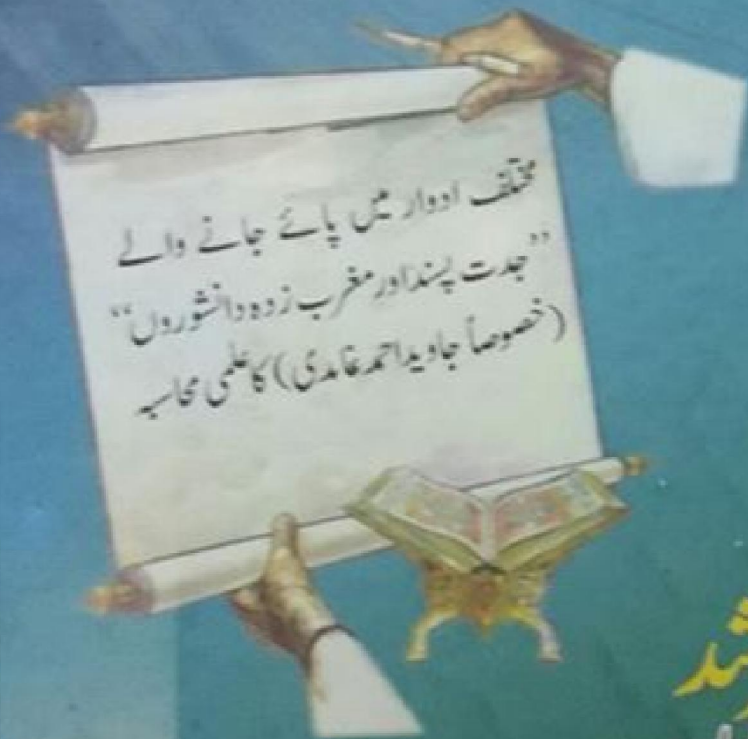 مختلف ادوار میں پائے جانے والے
"جدت پسند اور مغرب زدہ دانشوروں"
(خصوصاً جاوید احمد غامدی) کا علمی محاسبہ